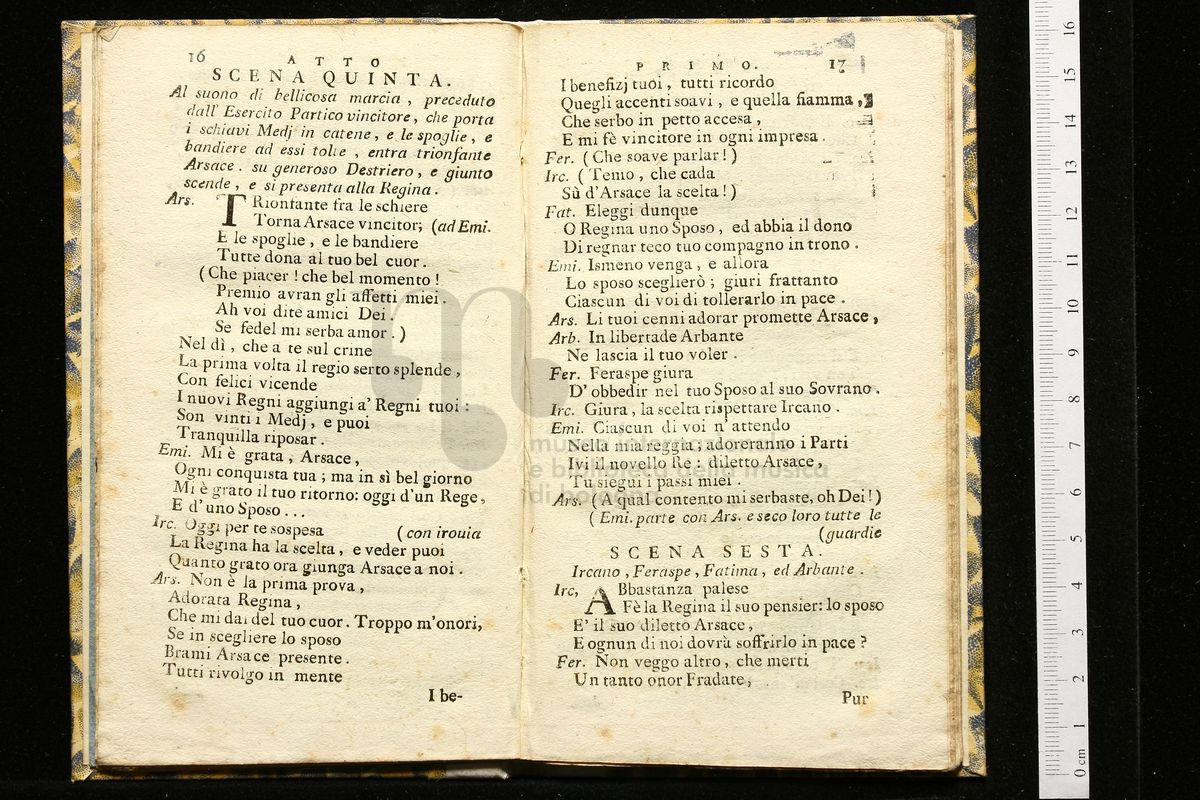 16
ATTO
SCENA QUINTA.
Al suono di bellicosa marcia, preceduto
dall'Esercito Partico vincitore, che porta
i schiavi Medj in catene, e le spoglie, e
bandiere ad essi tolte, entra trionfante
Arsace. su generoso Destriero, e giunto
scende, e si presenta alla Regina.
Ars. TRionfante fra le schiere
Torna Arsace vincitor; (ad Emi.
E le spoglie, e le bandiere
Tutte dona al tuo bel cuor.
(Che piacer! che bel momento!
Premio avran gli affetti miei.
Ah voi dite amici Dei.
Se fedel mi serba amor.)
Nel dì, che a te sul crine
La prima volta il regio serto splende,
Con felici vicende
I nuovi Regni aggiungi a' Regni tuoi:
Son vinti i Medj, e puoi
Tranquilla riposar.
Emi. Mi è grata, Arsace,
Ogni conquista tua; ma in sì bel giorno
Mi è grato il tuo ritorno: oggi d'un Rege,
E d'uno Sposo...
Irc. Oggi per te sospesa (con irouia
La Regina ha la scelta, e veder puoi
Quanto grato ora giunga Arsace a noi.
Ars. Non è la prima prova,
Adorata Regina,
Che mi dai del tuo cuor. Troppo m'onori,
Se in scegliere lo sposo
Brami Arsace presente.
Tutti rivolgo in mente
I be-
PRIMO. 17
I benefizj tuoi, tutti ricordo
Quegli accenti soavi, e quella fiamma,
Che serbo in petto accesa,
E mi fè vincitore in ogni impresa.
Fer. (Che soave parlar!)
Irc. (Temo, che cada
Sù d'Arsace la scelta!)
Fat. Eleggi dunque
O Regina uno Sposo, ed abbia il dono
Di regnar teco tuo compagno in trono.
Emi. Ismeno venga, e allora
Lo sposo sceglierò; giuri frattanto
Ciascun di voi di tollerarlo in pace.
Ars. Li tuoi cenni adorar promette Arsace,
Arb. In libertade Arbante
Ne lascia il tuo voler.
Fer. Feraspe giura
D'obbedir nel tuo Sposo al suo Sovrano.
Irc. Giura, la scelta rispettare Ircano.
Emi. Ciascun di voi n'attendo
Nella mia reggia, adoreranno i Parti
Ivi il novello Re: diletto Arsace,
Tu siegui i passi miei.
Ars. (A qual contento mi serbaste, oh Dei!)
(Emi. parte con Ars. e seco loro tutte le
(guardie
SCENA SESTA.
Ircano, Feraspe, Fatima, ed Arbante.
Irc, ABbastanza palese
Fè la Regina il suo pensier: lo sposo
E' il suo diletto Arsace,
E ognun di noi dovrà soffrirlo in pace?
Fer. Non veggo altro, che merti
Un tanto onor Fradate,
Pur
museo internazionale
e biblioteca della musica
di bologna
0 cm 1 2 3 4 5 6 7 8 9 10 11 12 13 14 15 16